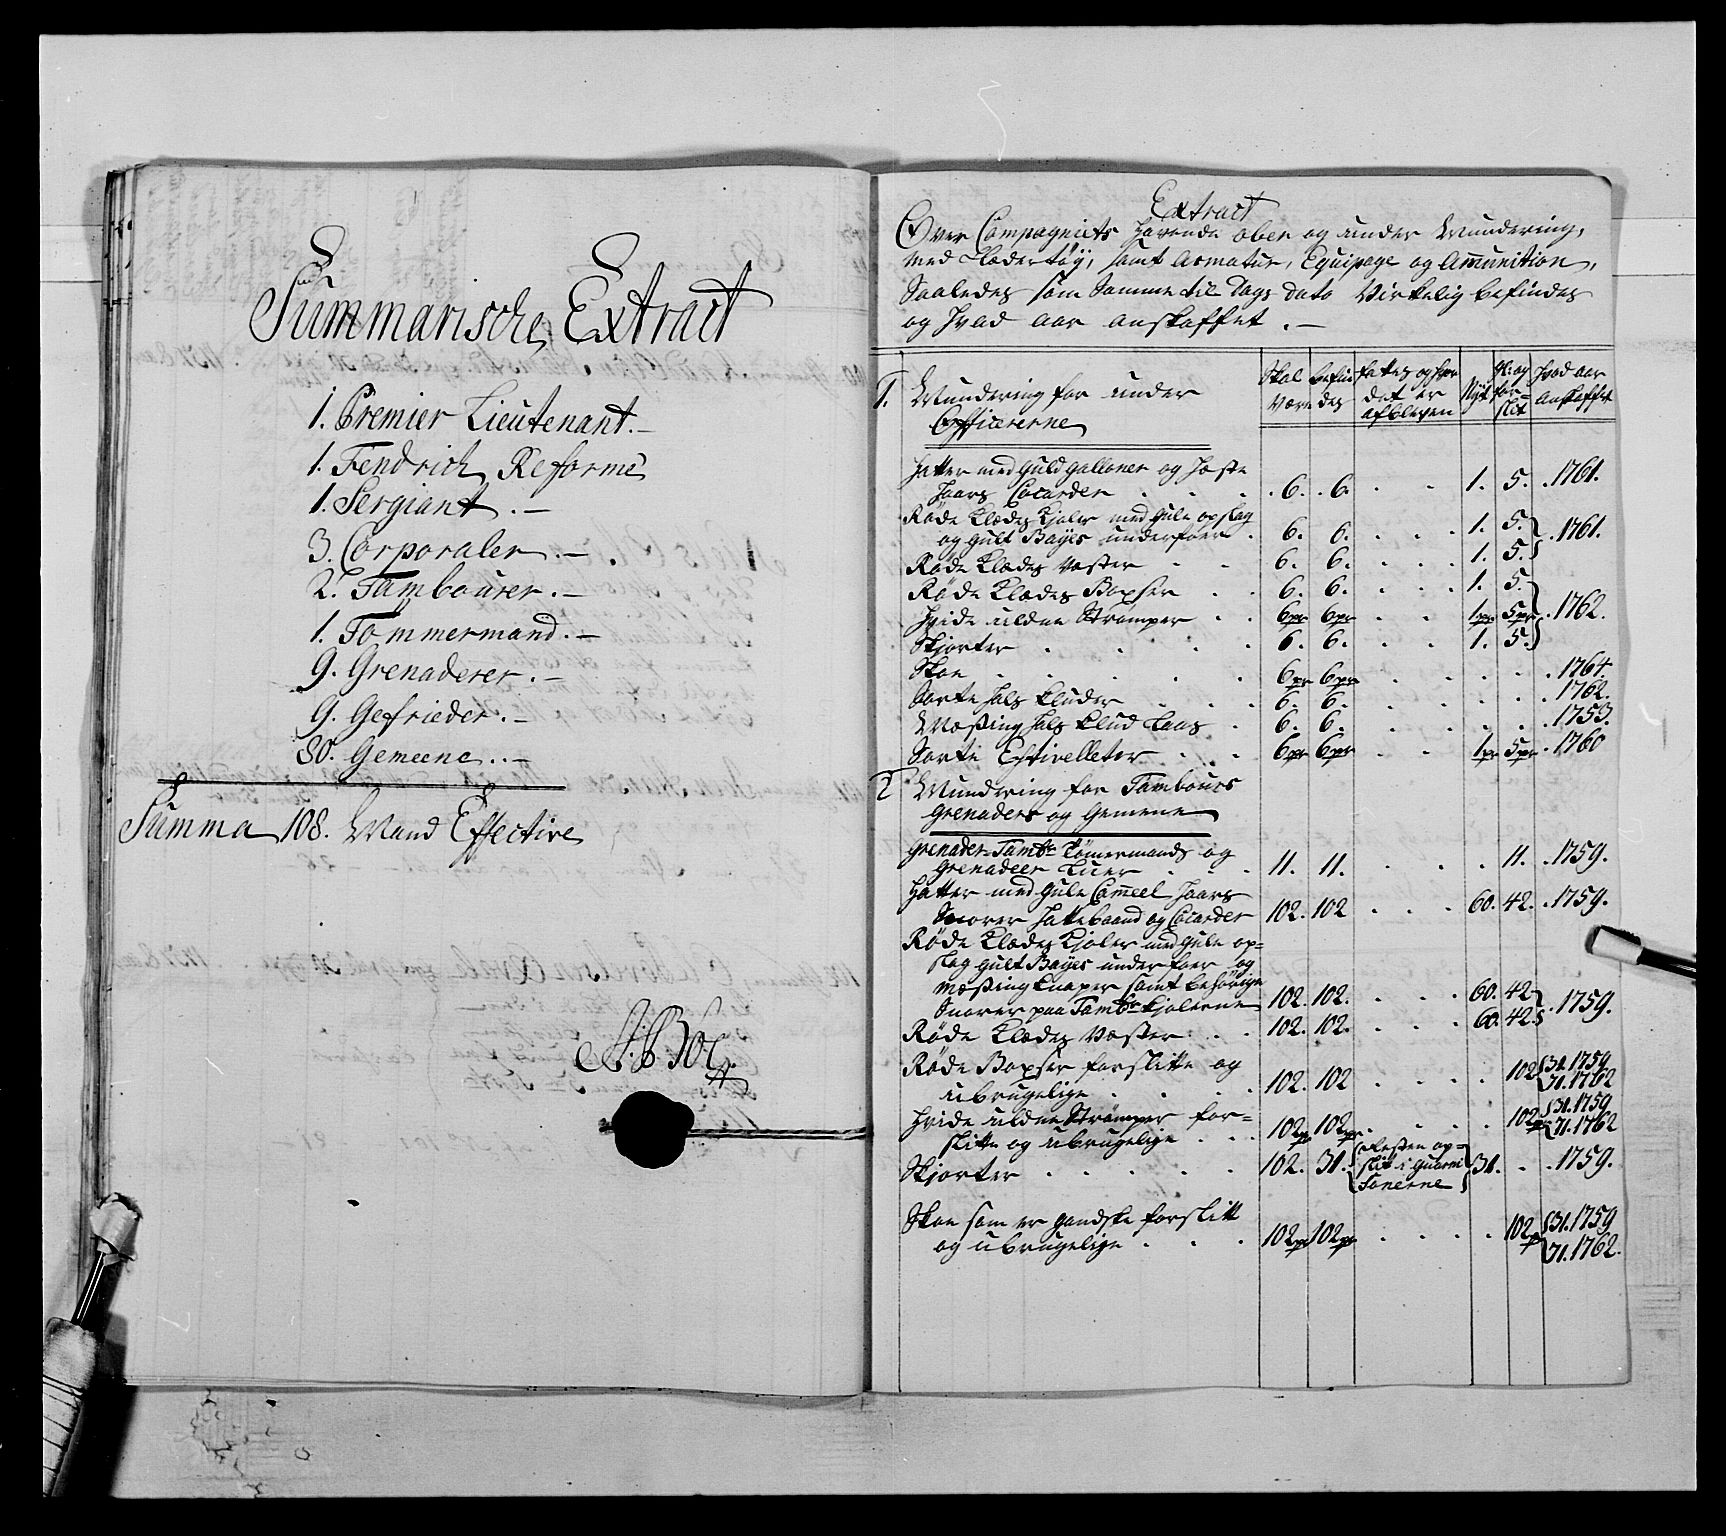 Summarische Extract
1. Premier Lieutenant. —
1. Fendrich Reformé
1. Sergiant. —
3. Corporaler. —
2. Tambourer. —
1. Tømmermand. —
9. Grenaderer. —
9. Gefrieder. —
80. Gemeene. . —
Summa 108. Mand Effective
Extract
Over Compagniets havende ober og under Mundering,
med Læder tøy, samt Armatur, Equipage og Amunition,
Saaledes som Samme til Dags Dato Virkelig befindes
og hvad aar anskaffet. —
1. Mundering for under Officererne
Skal Være
befindes
fattes og hvor det er afbleven
Nyt
for= slit
hvad aar anskaffet
Hatter med Guld Galloner og Heste
Haars Cocarder . . . 6. . 6. . . 1. 5. . 1761.
Røde Klædes Kjoler med Gule opslag
og Gult Bayes underfoer . 6. 6. . . . 1. 5. } . 1761.
Røde Klædes Vester . . 6. 6. . . . 1. 5.
Røde Klædes Boxser . . 6. 6. . . . 1. 5. } . 1762.
Hvide uldne Strømper . . 6pr 6pr . . 1pr 5pr
Skjorter . . . . 6. 6. . . 1. 5.
Skoe . . . . 6pr 6pr . . . . . 1764.
Sorte Hals Kluder . . . 6. 6. . . . . 1762.
Messing Hals Klud Laas . 6. 6. . . . . 1753.
Sorte Estivelletter . . . 6pr 6pr . . 1pr 5pr . 1760
2 Mundering for Tambours
Grenaders og Gemeene
Grenader Tambr Tømermands og
Grenadeer Luer . . . 11. 11. . . . 11. . 1759.
Hatter med Gule Cameel Haars
Snorer Hattebaand og Cocarder 102. 102 . . . 60. 42. . 1759.
Røde Klædes Kjoler med Gule op=
slag Gult Bayes underfoer og
Messing Knaper samt behørige
Snorer paa Tambr Kjolerne 102. 102. . . . 60. 42 } . 1759.
Røde Klædes Vester . . 102. 102. . . . 60. 42.
Røde Boxser forslitte og
ubrugelige . . . . 102. 102 . . . . 102 { 31. 1759
71. 1762
Hvide uldne Strømper for=
slitte og ubrugelige . . . 102pr 102pr . . . . 102pr { 31. 1759
71. 1762
Skjorter . . . . . 102. 31. { Resten op=
slit i Guarni
sonerne } 31. . . 1759.
Skoe som er gandske forslitt
og ubrugelige . . . 102pr 102pr . . . . 102pr { 31. 1759
71. 1762.